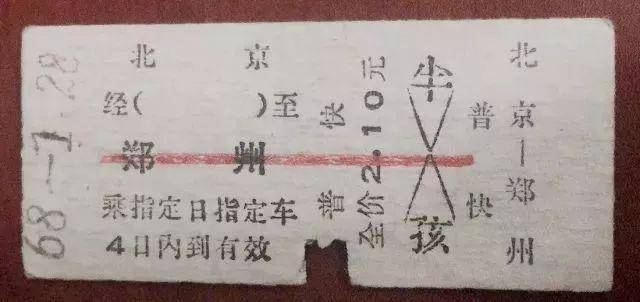 68-1.28
北京
经( )至
郑州
乘指定日指定车
4日内到有效
普快
全价2.10元
半
孩
普快
北京—郑州